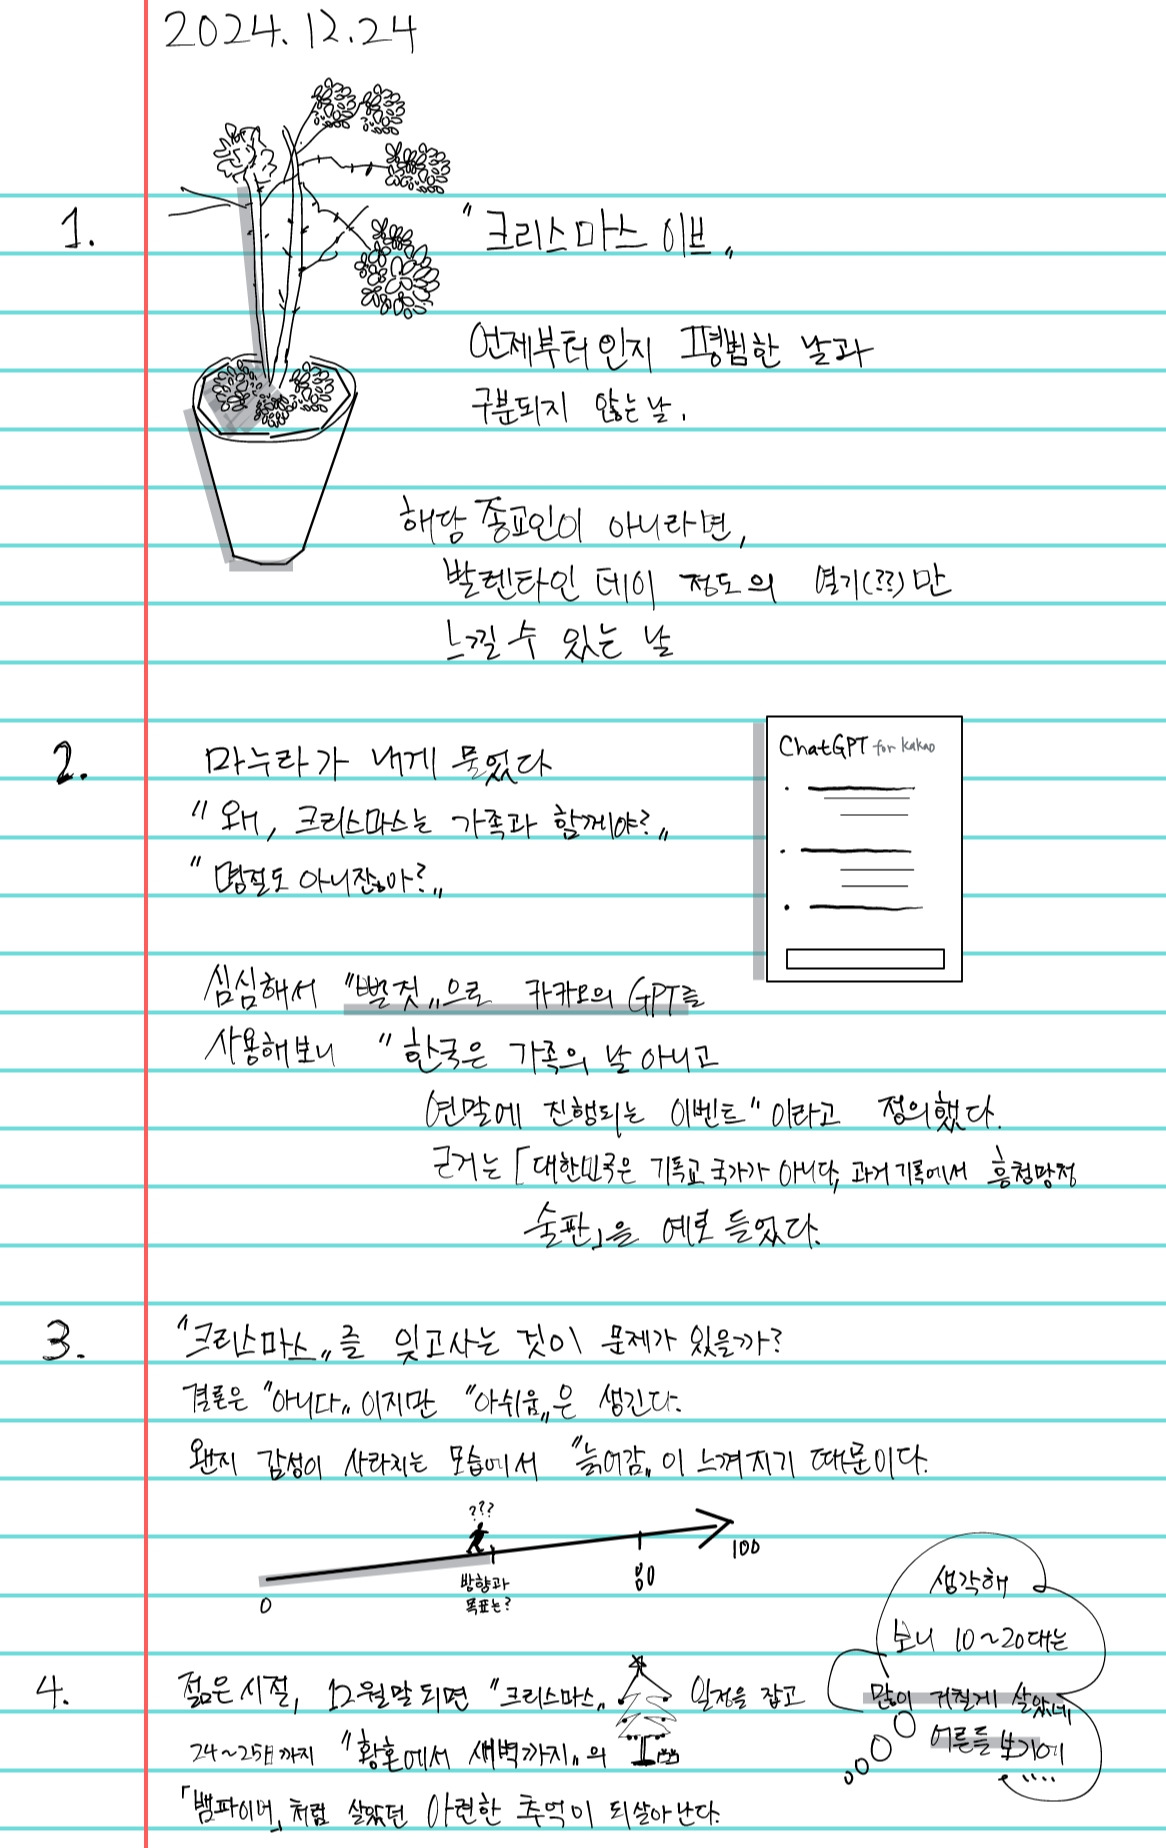 2024.12.24
1.
"크리스마스 이브"
언제부터인지 평범한 날과
구분되지 않는 날.
해당 종교인이 아니라면,
발렌타인 데이 정도의 열기(??)만
느낄 수 있는 날
2.
마누라가 내게 물었다
"왜, 크리스마스는 가족과 함께야?"
"명절도 아니잖아?"
ChatGPT for kakao
심심해서 "뻘짓"으로 카카오의 GPT를
사용해보니 "한국은 가족의 날 아니고
연말에 진행되는 이벤트" 이라고 정의했다.
근거는 「대한민국은 기독교 국가가 아니다, 과거 기록에서 흥청망청
술판」을 예로 들었다.
3.
"크리스마스"를 잊고사는 것이 문제가 있을까?
결론은 "아니다" 이지만 "아쉬움"은 생긴다.
왠지 감성이 사라지는 모습에서 "늙어감"이 느껴지기 때문이다.
???
0
방향과
목표는?
80
100
4.
젊은시절, 12월말 되면 "크리스마스" 일정을 잡고
24~25日까지 "황혼에서 새벽까지"의
「뱀파이어」처럼 살았던 아련한 추억이 되살아난다.
생각해
보니 10~20대는
많이 거칠게 살았네,
어른들 보기에
.....